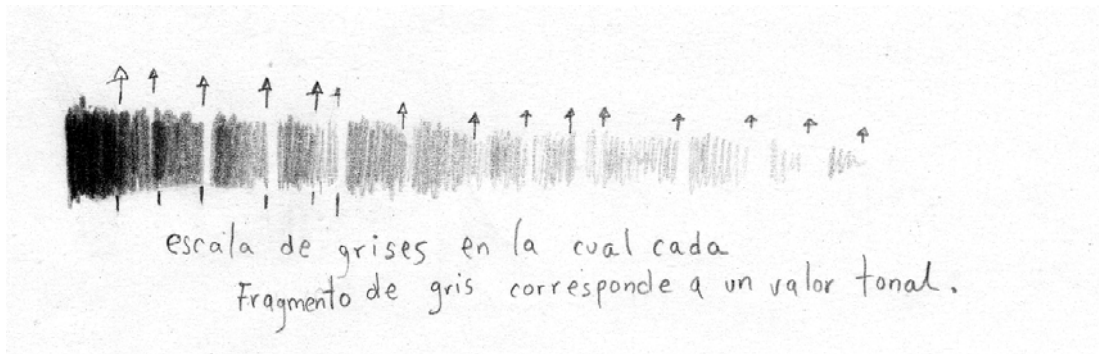 escala de grises en la cual cada
Fragmento de gris corresponde a un valor tonal.